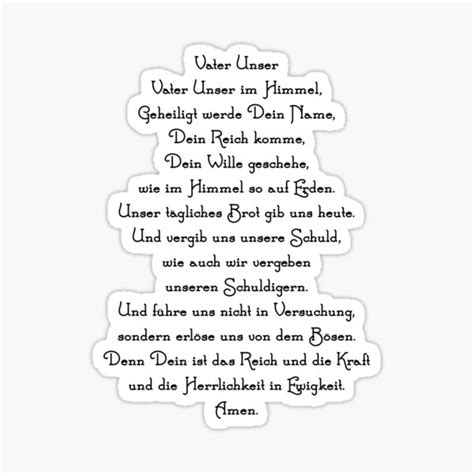 Vater Unser
Vater Unser im Himmel,
Geheiligt werde Dein Name,
Dein Reich komme,
Dein Wille geschehe,
wie im Himmel so auf Erden.
Unser tägliches Brot gib uns heute.
Und vergib uns unsere Schuld,
wie auch wir vergeben
unseren Schuldigern.
Und führe uns nicht in Versuchung,
sondern erlöse uns von dem Bösen.
Denn Dein ist das Reich und die Kraft
und die Herrlichkeit in Ewigkeit.
Amen.